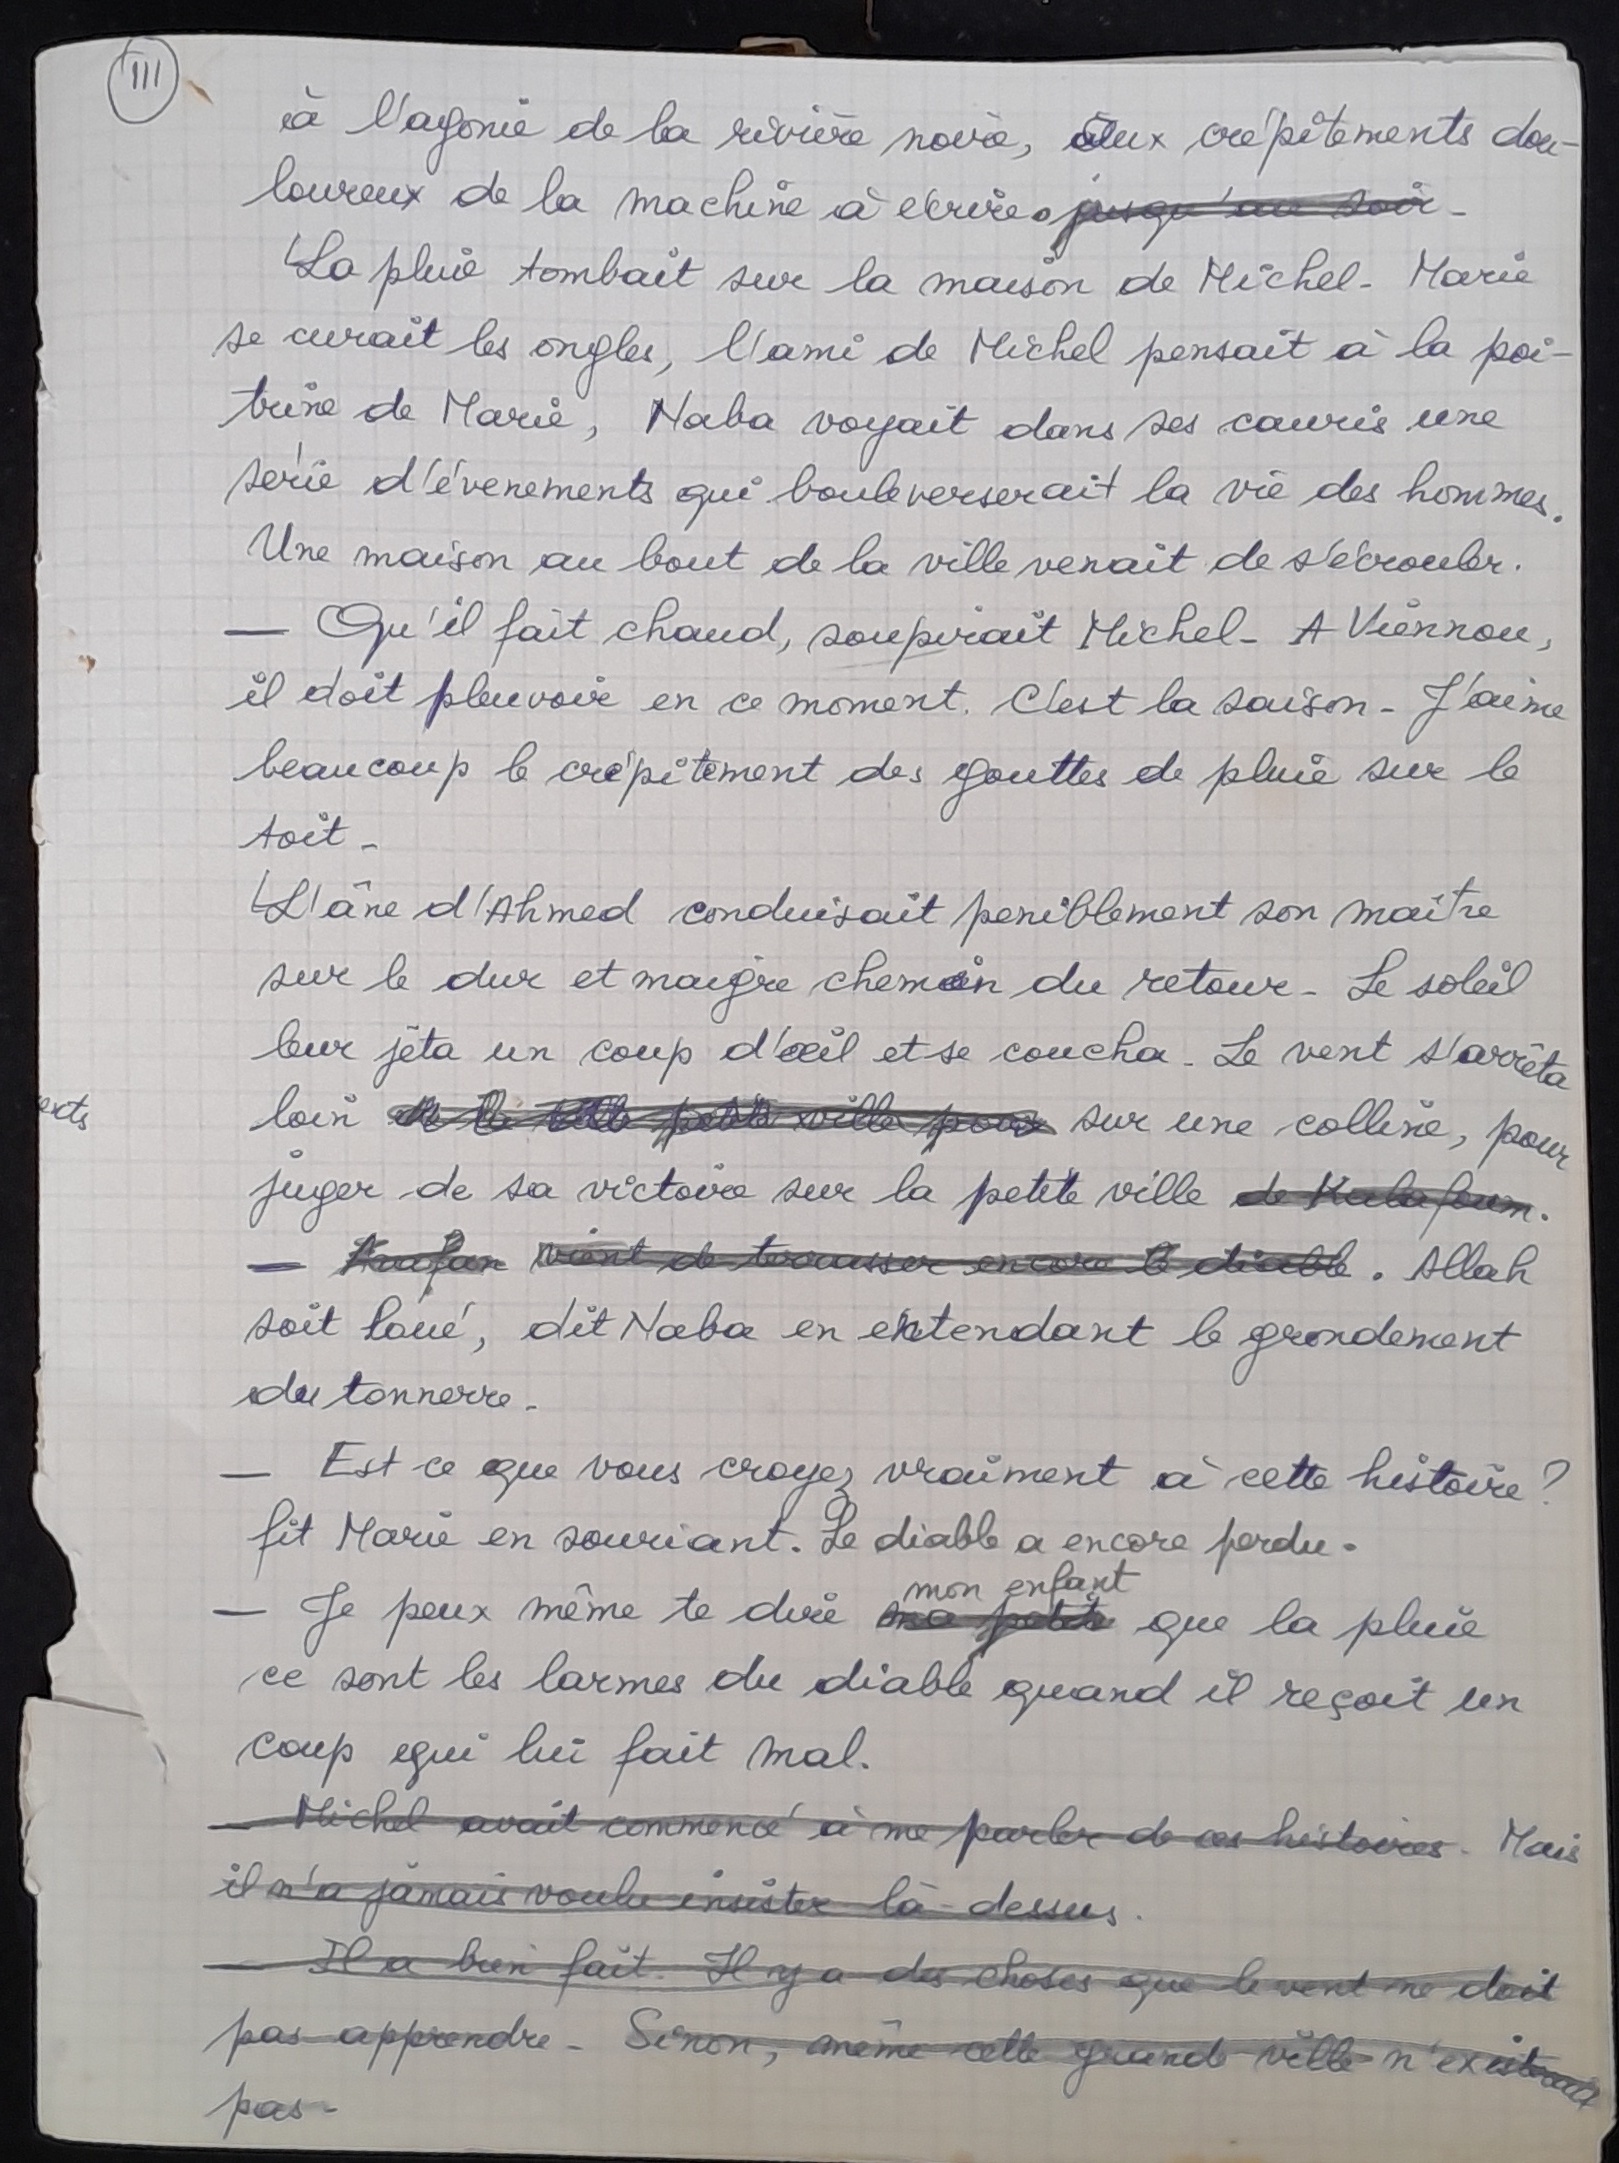 III
à l'agonie de la rivière noire, aux crépitements dou-
loureux de la machine à écrire. jusqu'au soir -
La pluie tombait sur la maison de Michel - Marie
se curait les ongles, l'ami de Michel pensait à la poi-
trine de Marie, Naba voyait dans ses cauris une
série d'évenements qui bouleverserait la vie des hommes.
Une maison au bout de la ville venait de s'écrouler.
— Qu'il fait chaud, soupirait Michel - A Viennou,
il doit pleuvoir en ce moment. C'est la saison - J'aime
beaucoup le crépitement des gouttes de pluie sur le
toit -
L'âne d'Ahmed conduisait peniblement son maître
sur le dur et maigre chemin du retour - Le soleil
leur jèta un coup d'œil et se coucha - Le vent s'arrêta
loin petite ville pour sur une colline, pour
juger de sa victoire sur la petite ville de Kulafoum.
— vient de terrasser encore le diable. Allah
soit loué, dit Naba en entendant le grondement
du tonnerre -
— Est ce que vous croyez vraiment à cette histoire ?
fit Marie en souriant. Le diable a encore perdu -
mon enfant
— Je peux même te dire ma petite que la pluie
ce sont les larmes du diable quand il reçoit un
coup qui lui fait mal.
— Michel avait commencé à me parler de ces histoires. Mais
il n'a jamais voulu insister là-dessus.
— Il a bien fait. Il y a des choses que le vent ne doit
pas apprendre - Sinon, même cette grande ville n'existerait
pas -